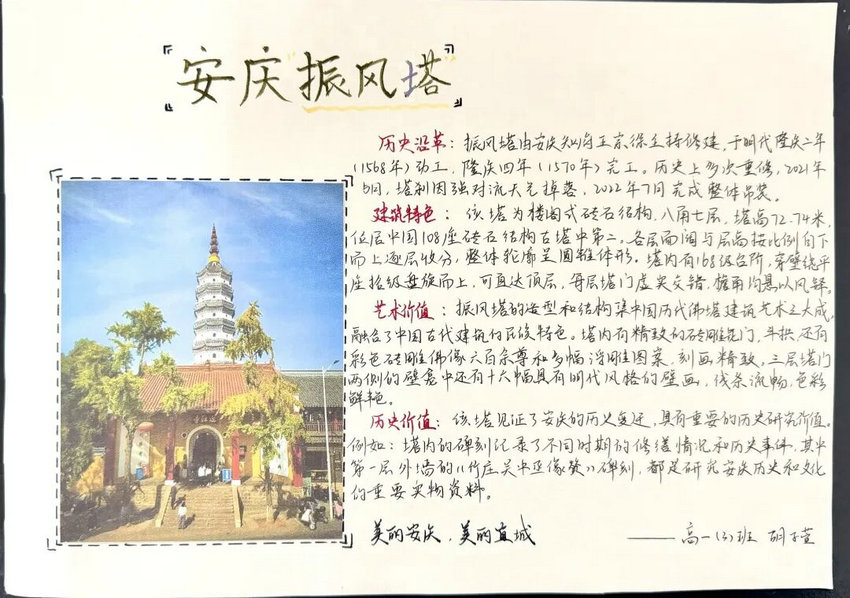 安庆“振风塔”
历史沿革：振风塔由安庆知府王宗徐主持修建，于明代隆庆二年
(1568年)动工，隆庆四年(1570年)完工。历史上多次重修，2021年
5月，塔刹因强对流天气掉落，2022年7月完成整体吊装。
建筑特色：该塔为楼阁式砖石结构，八角七层，塔高72.74米，
位居中国108座砖石结构古塔中第二。各层面阔与层高按比例自下
而上逐层收分，整体轮廓呈圆锥体形。塔内有168级台阶，穿壁绕平
座拾级盘旋而上，可直达顶层，每层塔门虚实交错，檐角均悬以风铎。
艺术价值：振风塔的造型和结构集中国历代佛塔建筑艺术之大成，
融合了中国古代建筑的民族特色。塔内有精致的砖雕花门、斗拱，还有
彩色砖雕佛像六百余尊和多幅浮雕图案，刻画精致。三层塔门
两侧的壁龛中还有十六幅具有明代风格的壁画，线条流畅，色彩
鲜艳。
历史价值：该塔见证了安庆的历史变迁，具有重要的历史研究价值。
例如：塔内的碑刻记录了不同时期的修缮情况和历史事件，其中
第一层外墙的《竹庄吴中丞像赞》碑刻，都是研究安庆历史和文化
的重要实物资料。
美丽安庆，美丽宜城
——高一(3)班 胡子萱